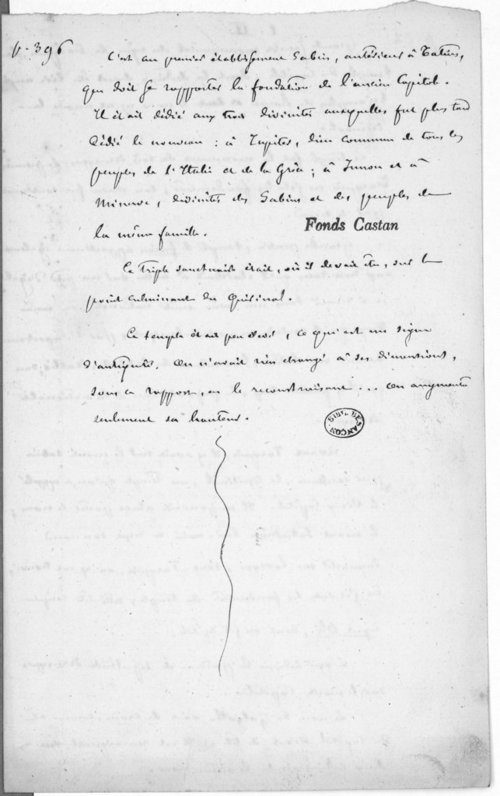 p. 396
C'est au premier établissement Sabin, antérieur à Tatius,
que doit se rapporter la fondation de l'ancien Capitole.
Il était dédié aux trois divinités auxquelles fut plus tard
dédié le nouveau : à Jupiter, dieu commun de tous les
peuples de l'Italie et de la Grèce ; à Junon et à
Minerve, divinités des Sabins et des peuples de
la même famille.
Fonds Castan
Ce triple sanctuaire était, où il devait être, sur le
point culminant du Quirinal.
Ce temple était peu élevé, ce qui est un signe
d'antiquité. On n'avait rien changé à ses dimensions,
sous ce rapport, en le reconstruisant ... on augmenta
seulement sa hauteur.
BIBL. BESANÇON